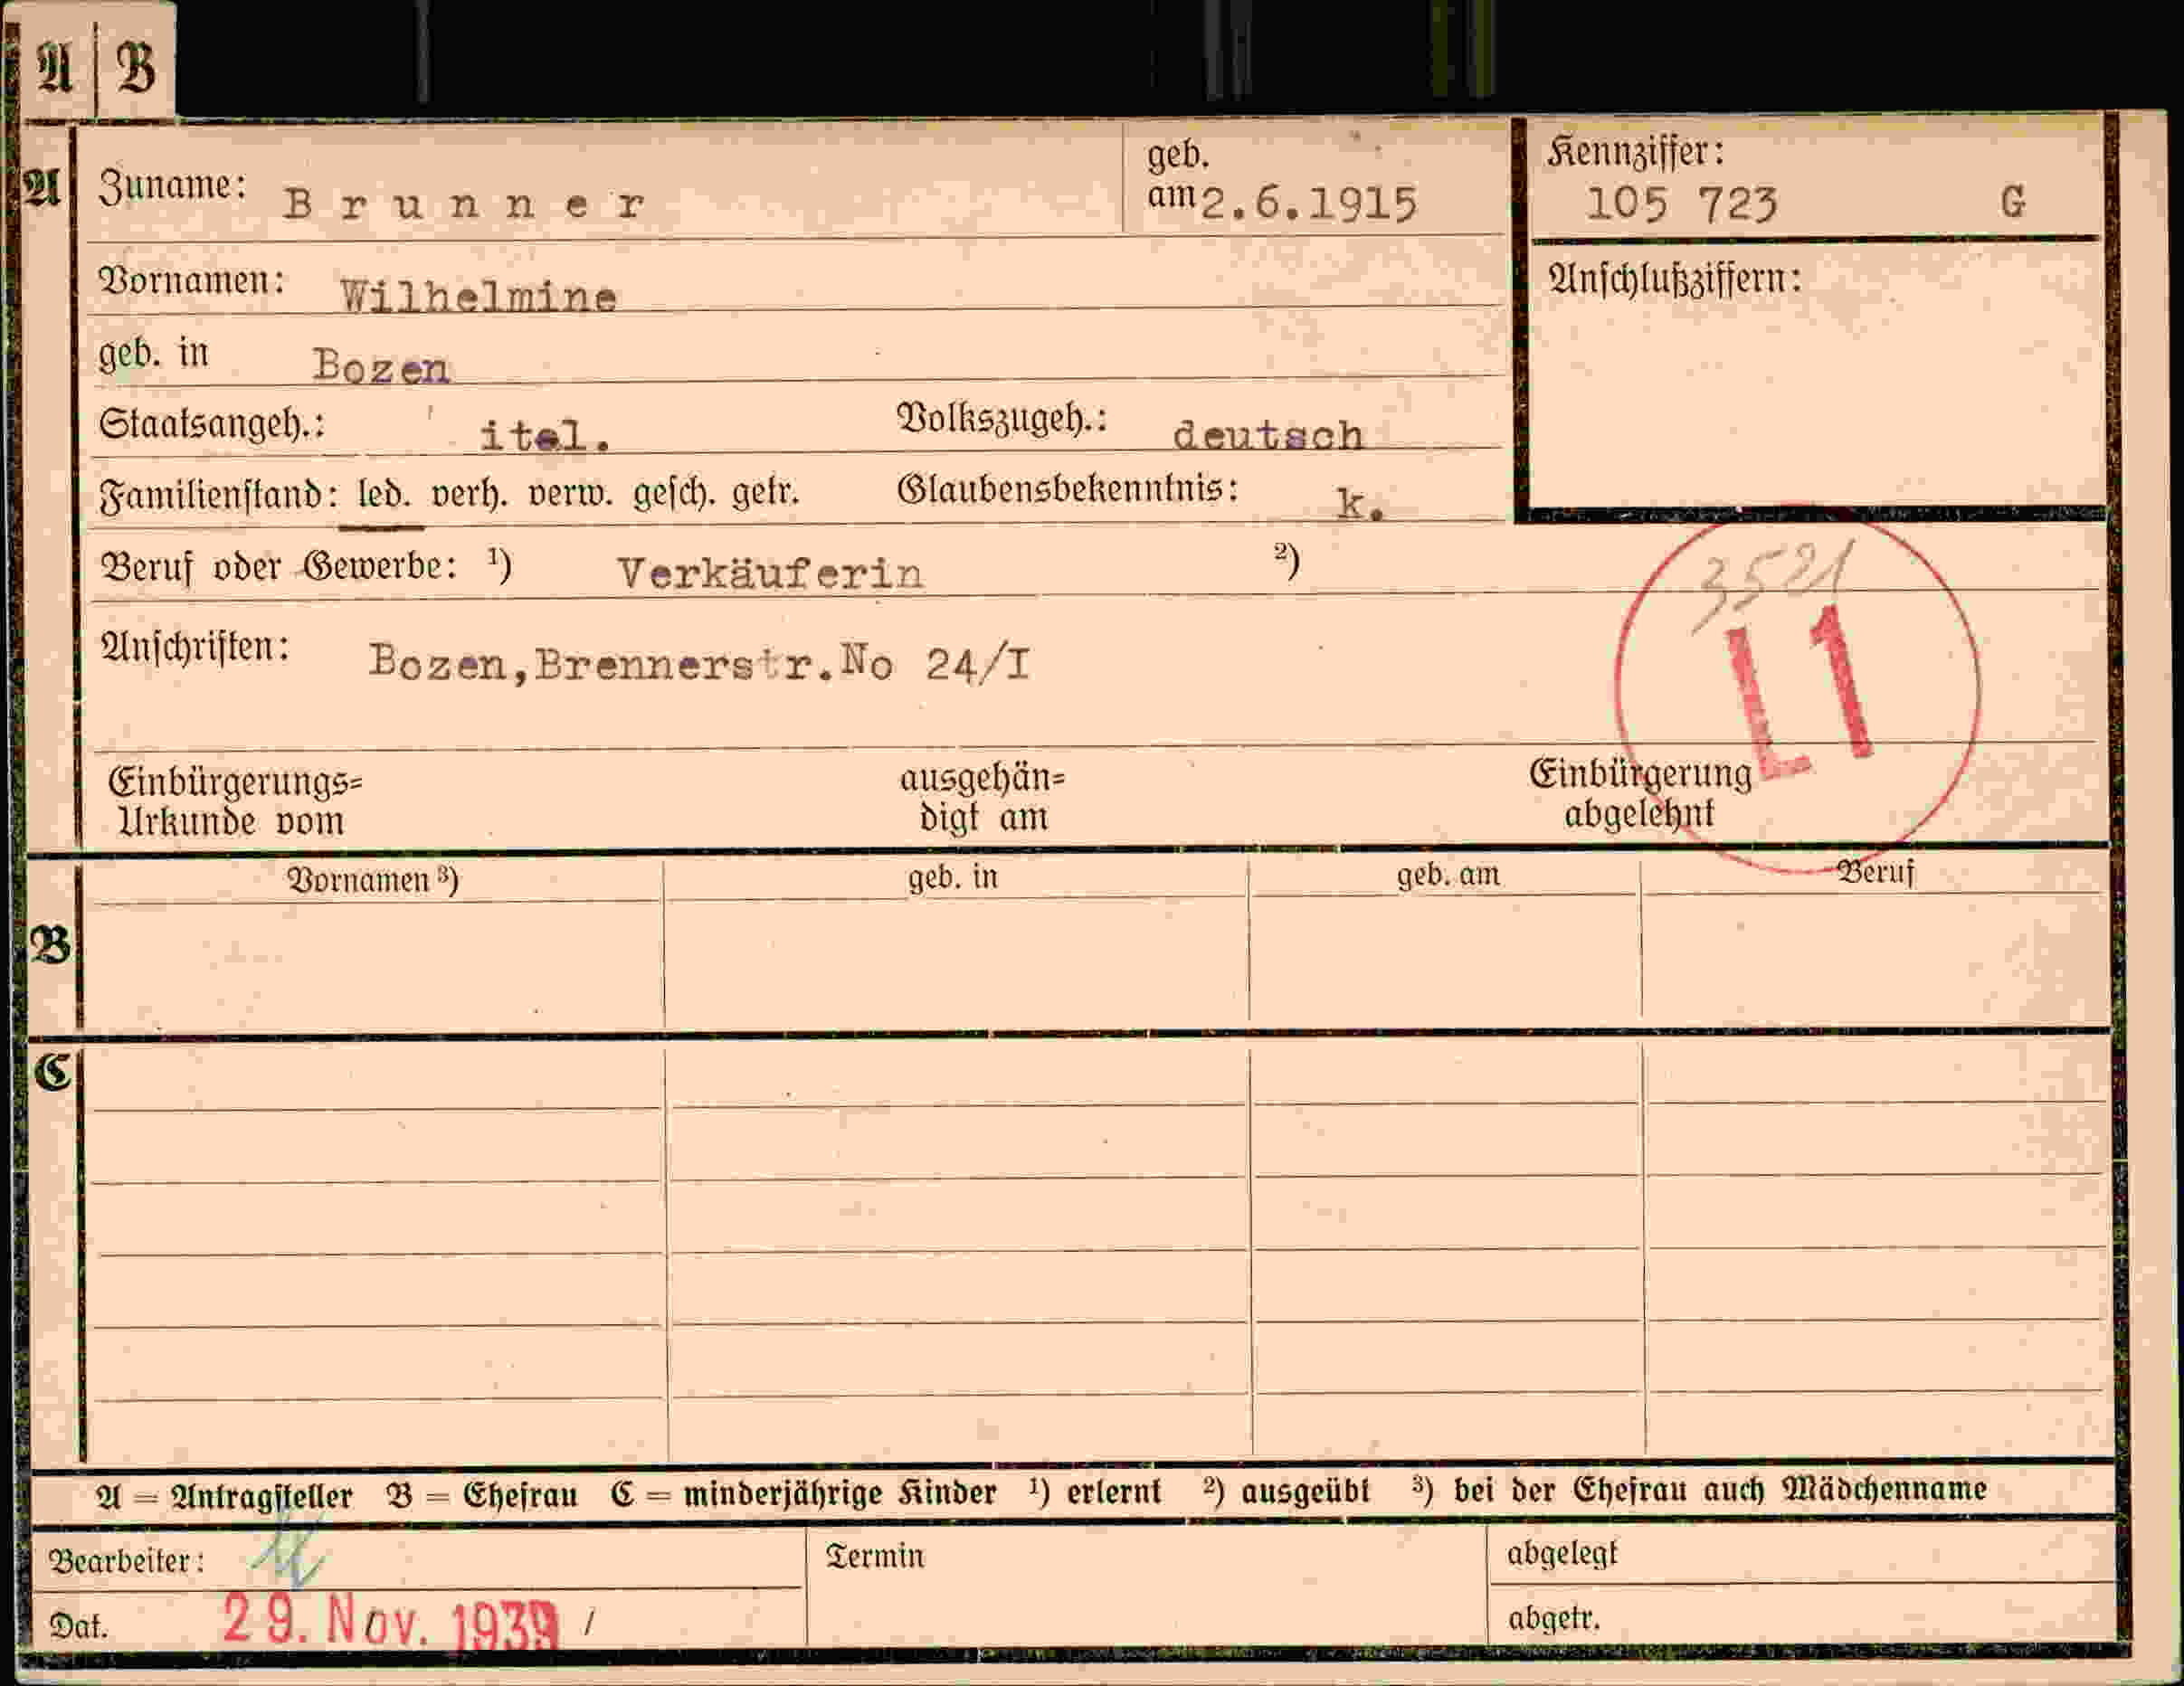 A B
A
Zuname: Brunner
geb. am 2.6.1915
Kennziffer:
105 723 G
Vornamen: Wilhelmine
Anschlußziffern:
geb. in Bozen
Staatsangeh.: ital. Volkszugeh.: deutsch
Familienstand: led. verh. verw. gesch. getr. Glaubensbekenntnis: k.
Beruf oder Gewerbe: ¹) Verkäuferin ²)
3521
L1
Anschriften: Bozen,Brennerstr.No 24/I
Einbürgerungs=
Urkunde vom
ausgehän=
digt am
Einbürgerung
abgelehnt
B
Vornamen ³) geb. in geb. am Beruf
C
A = Antragsteller B = Ehefrau C = minderjährige Kinder ¹) erlernt ²) ausgeübt ³) bei der Ehefrau auch Mädchenname
Bearbeiter:
Termin
abgelegt
Dat. 29. Nov. 1939 /
abgetr.